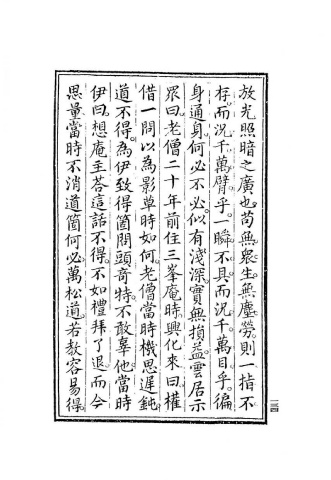 放光照暗之廣也。苟無衆生無塵勞。則一指不
存。而況千萬臂乎。一瞬不具。而況千萬目乎。徧
身通身。何必不必。似有淺深。實無損益。雲居示
眾曰。老僧二十年前住三峯庵時。興化來曰。權
借一問以為影草時如何。老僧當時機思遲鈍。
道不得。為伊致得箇問頭奇特。不敢辜他。當時
伊曰。想庵主荅這話不得。不如禮拜了退。而今
思量。當時不消道箇何必。萬松道。若教容易得。
一三四